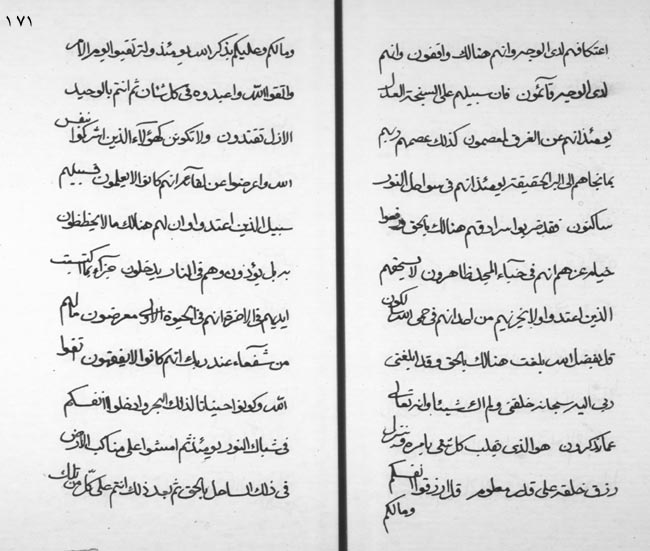 ١٧١
اعتكافهم لدى الوحيد وانهم هنالك واقفون وانهم
لدى الوحيد قآئمون فان سبيلهم على السفينة العدل
يومئذ انهم عن الغرق لمعصمون كذلك عصمهم ربهم
بما نجاهم الى البر الحقيقة يومئذ انهم فى سواحل النور
ساكنون فقد ضربوا سرادقهم هنالك بالحق ورفعوا
خيام عزهم انهم فى خبآء المجد ظاهرون لا يسبقهم
الذين اعتدوا ولا يحزنهم من احد انهم فى حمى الله لكون
قل بفضل الله بلغت هنالك بالحق وقد ابلغنى
ربى اليه سبحانه خلقنى ولم اك شيئا وانه تعالى
عما تذكرون هو الذى يقلب كل شئ بامره وقد نزل
رزق خلقه على قدر معلوم قل ان رزقوا انفسكم
ومالكم
ومالكم وعليكم بذكر الله يومئذ ولترتقبوا اليوم الامر
واتقوا الله واعبدوه فى كل شان ثم انتم بالوحيد
الاول تقتدون ولا تكونن كهؤلآء الذين اشركوا بنفس
الله واعرضوا عن لقآئه انهم كانوا لا يعلمون فسبيلهم
سبيل الذين اعتدوا وان لهم هنالك ما لا يحفظون
به بل يؤذون وهم فى النار يدخلون جزآء بما اكتسبت
ايديهم فى الاخرة انهم فى الحيوة الاولى معرضون ما لهم
من شفعآء عند ربك انهم كانوا لا يفقهون اتقوا
الله وكونوا حيتانا لذلك البحر وادخلوا انفسكم
فى شباك النور يومئذ ثم امشوا على مناكب الارض
فى ذلك الساحل بالحق ثم بعد ذلك انتم على كل من تلك